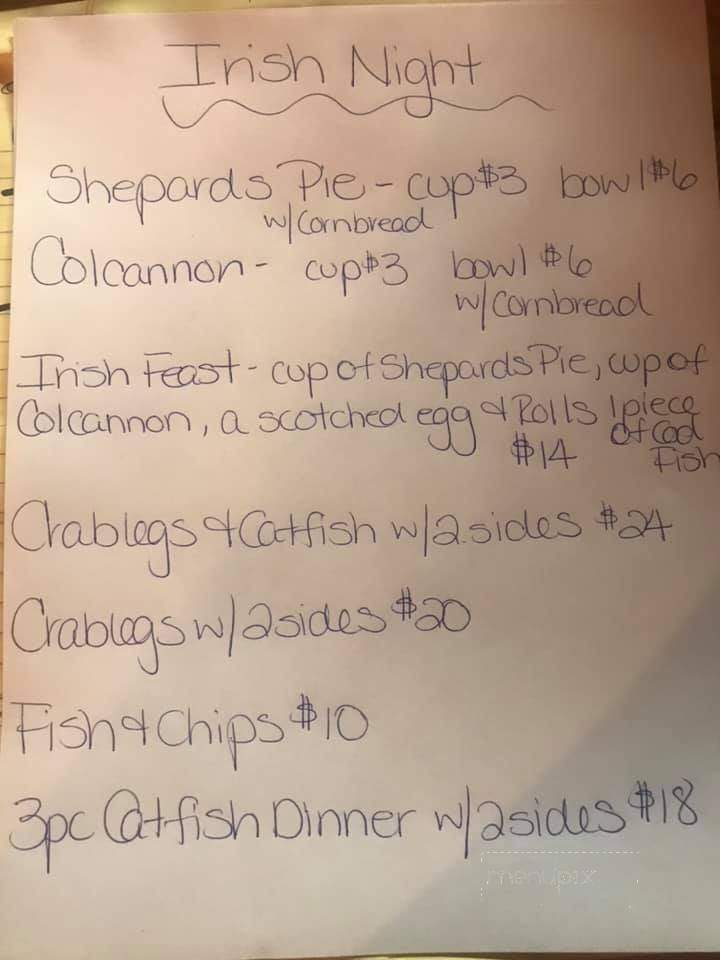 Irish Night
Shepards Pie - cup $3 bowl $6
w/Cornbread
Colcannon - cup $3 bowl $6
w/Cornbread
Irish Feast - cup of Shepards Pie, cup of
Colcannon, a scotched egg & Rolls 1 piece
of Cod
$14 Fish
Crablegs & Catfish w/2 sides $24
Crablegs w/2 sides $20
Fish & Chips $10
3pc Catfish Dinner w/2 sides $18
menupix